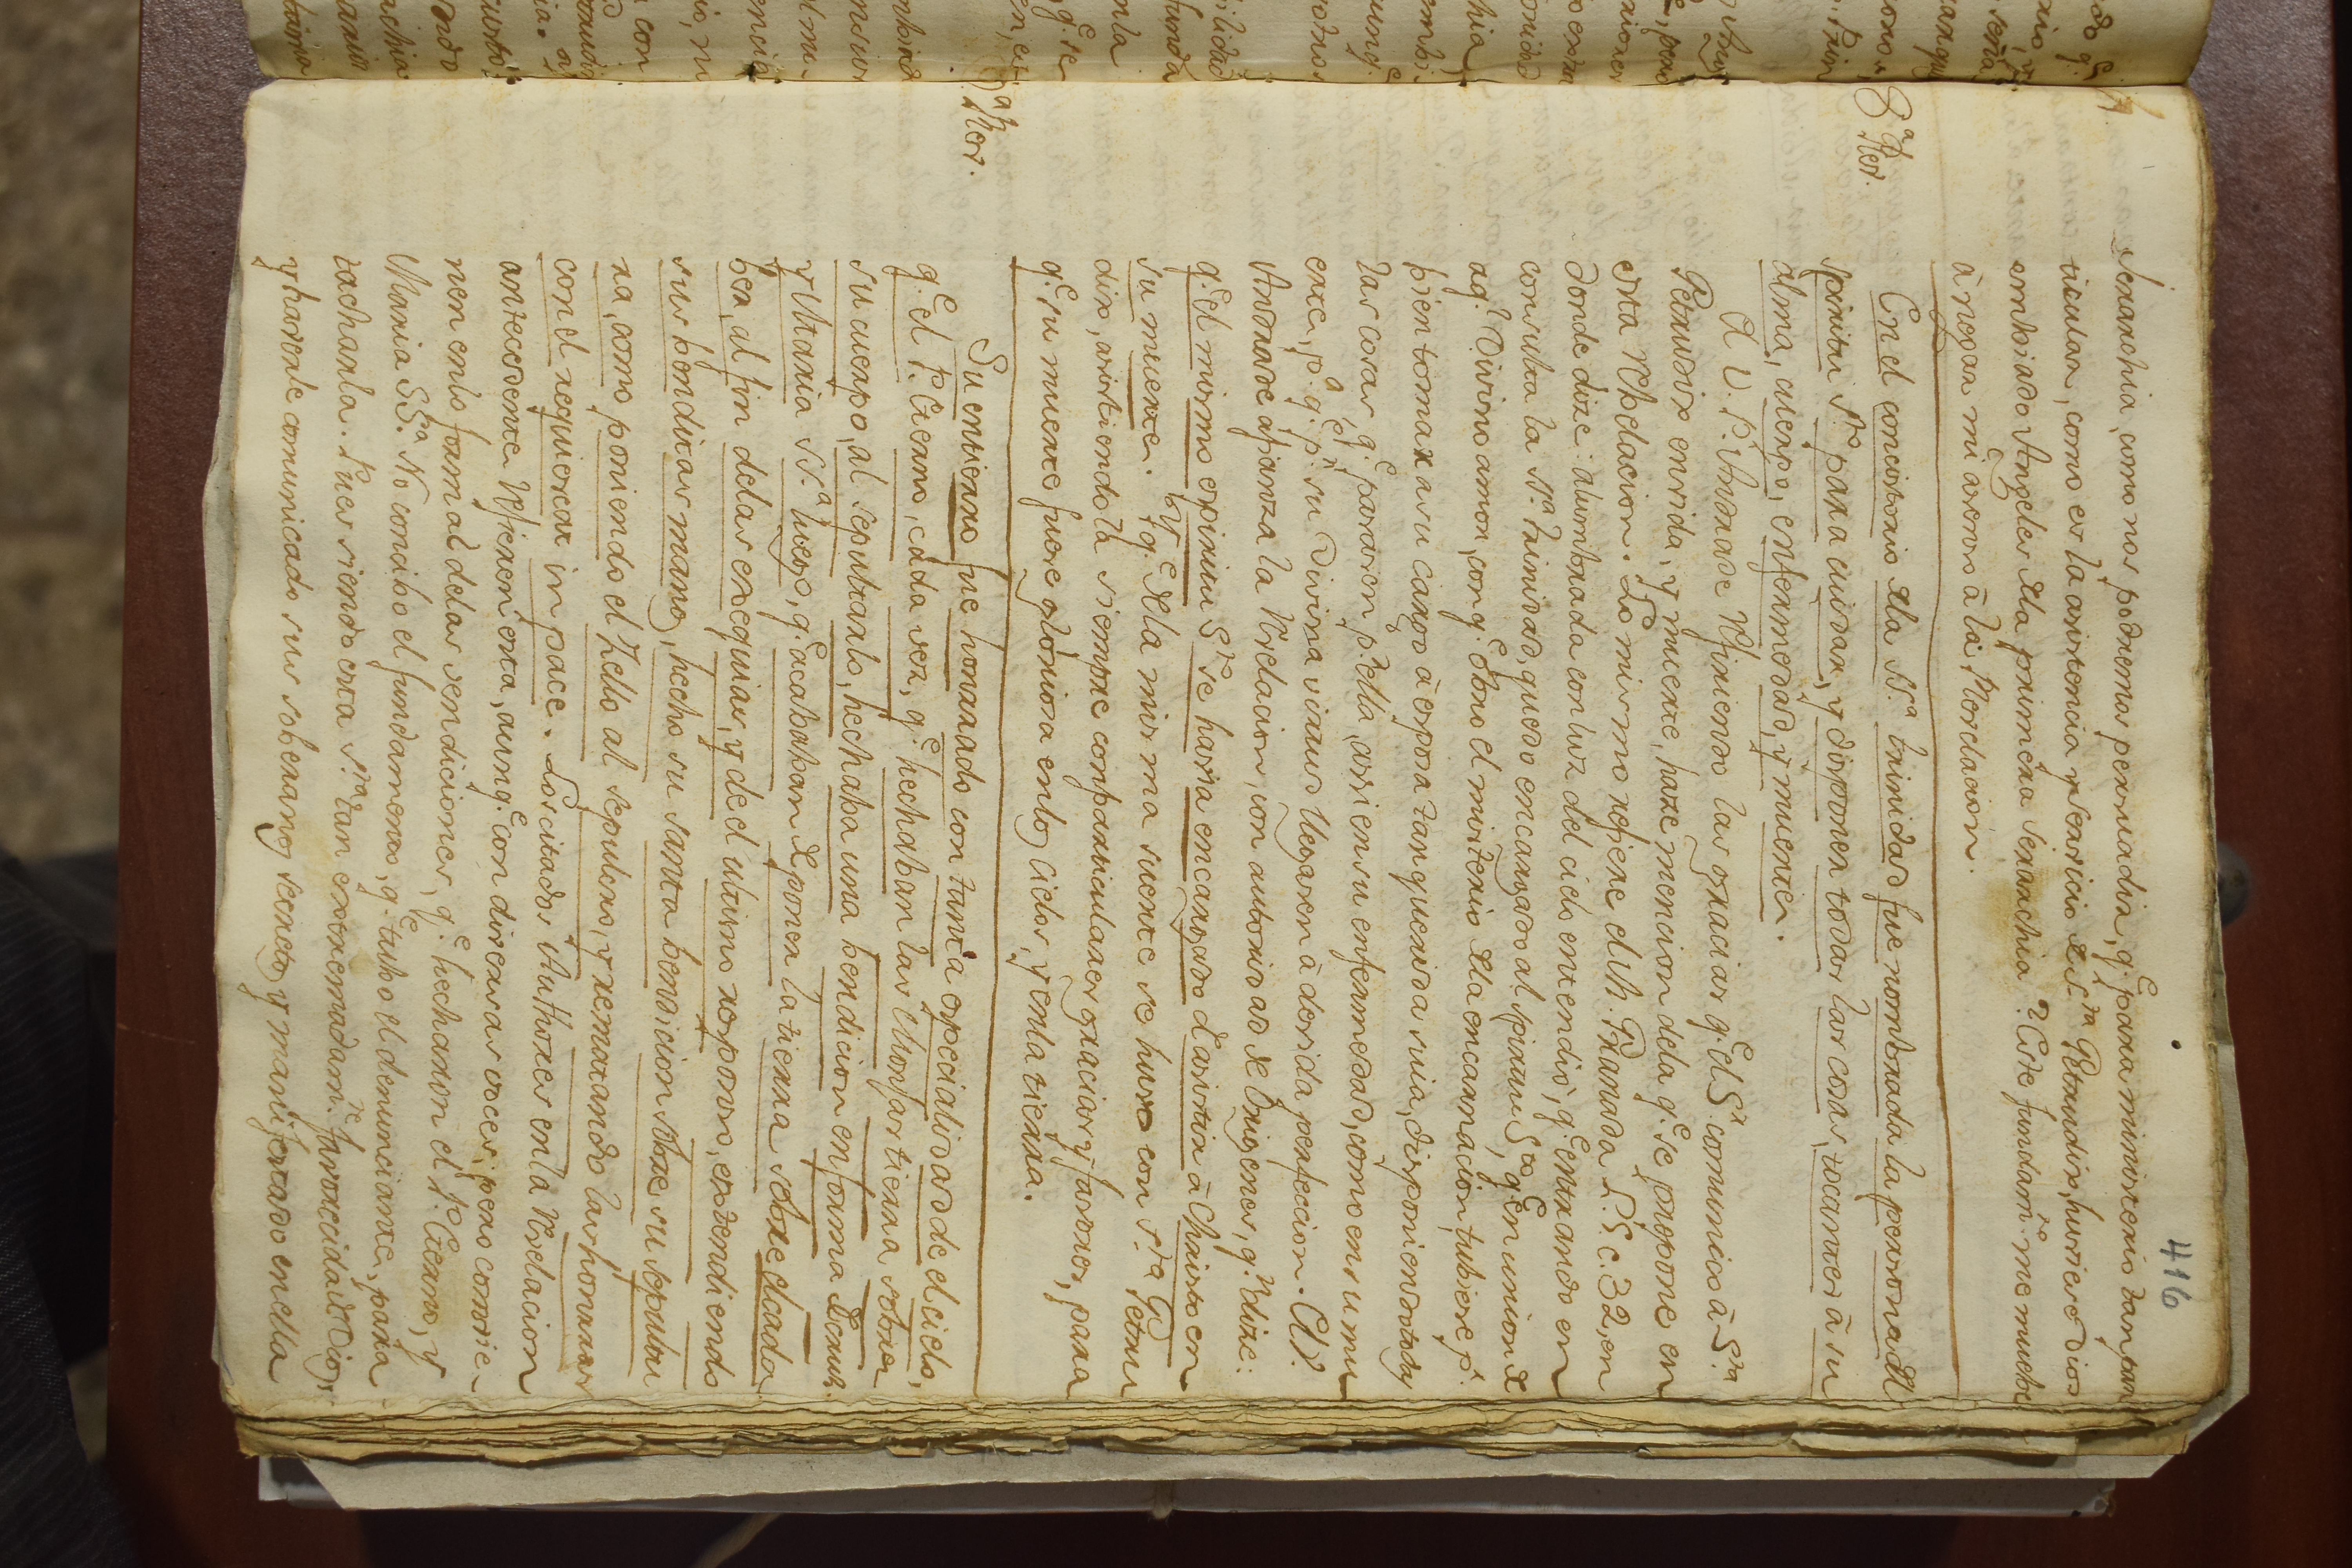 416
Jerarchia, como nos podremos persuadir, q.e para ministerio tan par
ticular, como es la asistencia y servicio de S.ra Petrudis, huviese Dios
embiado Angeles de la primera Jerarchia? Este fundam.to me mueve
à negar mi asenso à la Revelacion.
8.a Rev.
En el concistorio de la SS.a trinidad fue nombrada la persona del
spiritu S.to para cuidar, y disponer todas las cosas, tocantes à su
alma, cuerpo, enfermedad, y muerte.
El V. P. Andrade refiriendo las graciar q.e el S.r comunicò à S.ra
Petrudis en vida, y muerte, haze mencion de la q.e se propone en
esta Revelacion. Lo mismo refiere el M. Granada L. 5. c. 32, en
donde dize: alumbrada con luz del cielo entendiò, q.e entrando en
consulta la SS.a trinidad, quedo encargado al spiritu S.to q.e en union de
aq.l Divino amor, con q.e obrò el misterio de la encarnacion, tubiese p.r
bien tomar a su cargo à esposa tan querida suia, disponiendo todas
las cosas q.e pasasen p.r ella, assi en su enfermedad, como en su mu
erte, p.a q.e p.r su Divina virtud llegasen à devida perfeccion. El P.
Andrade afianza la Revelacion, con autoridad de Origenes, q.n dize:
q.e el mismo espiritu S.to se havia encargado de asistir à Christo en
su muerte. Y q.e de la misma suerte se huvo con S.ta Getru
dis, asistiendola siempre con particulares gracias y favores, para
q.e su muerte fuese gloriosa en los cielos, y en la tierra.
9.a Rev.
Su entierro fue honrado con tanta especialidad de el cielo,
q.e el P. Eterno, cada vez, q.e hechaban las Monjas tierra sobre
su cuerpo, al sepultarlo, hechaba una bendicion en forma de cruz.
y Maria SS.a luego, q.e acababan de poner la tierra sobre el cada
ber, al fin de las exequias, y de el ultimo resposo, estendiendo
sus benditas manos, hecho su santa bendicion sobre su sepultu
ra, como poniendo el zello al sepulcro, y rematando las honrras
con el requiescat in pace. Los citados Authores en la Revelacion
antecedente refieren esta, aunq.e con diversas voces; pero convie-
nen en lo formal de las vendiciones, q.e hecharon el P. Eterno, y
Maria SS.ra No concibo el fundamento, q.e tubo el denunciante, para
tacharla. Pues siendo esta S.ra tan extremadam.te favorecida de Dios,
y haverle comunicado sus soberanos secretos y manifestado en ella